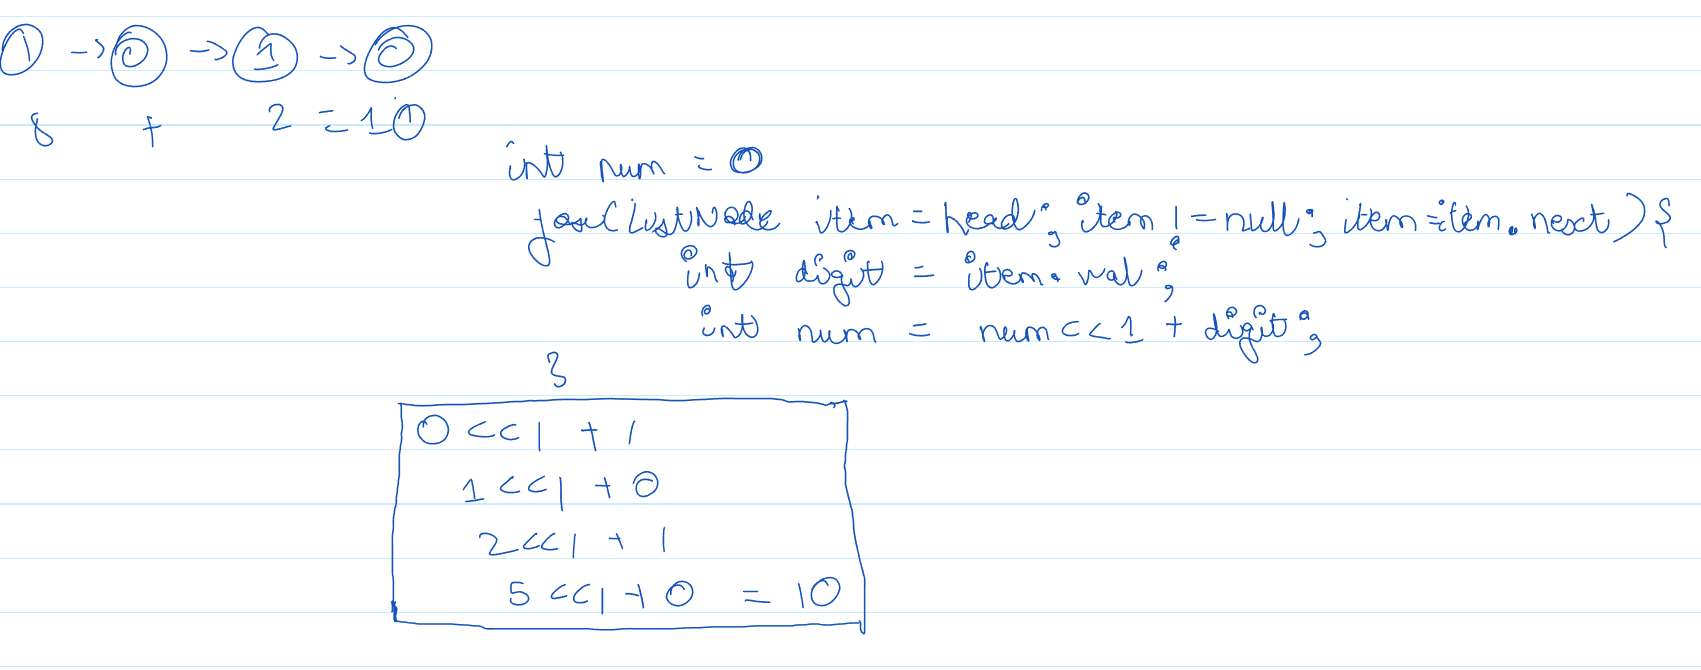 1 -> 0 -> 1 -> 0
8 + 2 = 10
int num = 0
for(ListNode item = head; item != null; item = item.next){
int digit = item.val;
int num = num << 1 + digit;
}
0 << 1 + 1
1 << 1 + 0
2 << 1 + 1
5 << 1 + 0 = 10